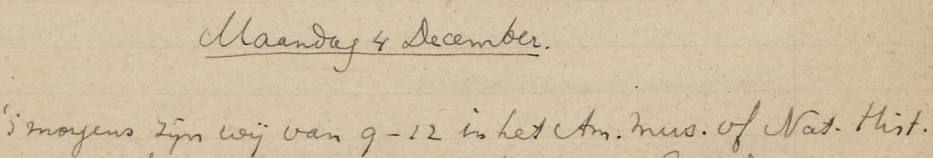 Maandag 4 December.
's morgens zijn wij van 9-12 in het Am. Mus. of Nat. Hist.